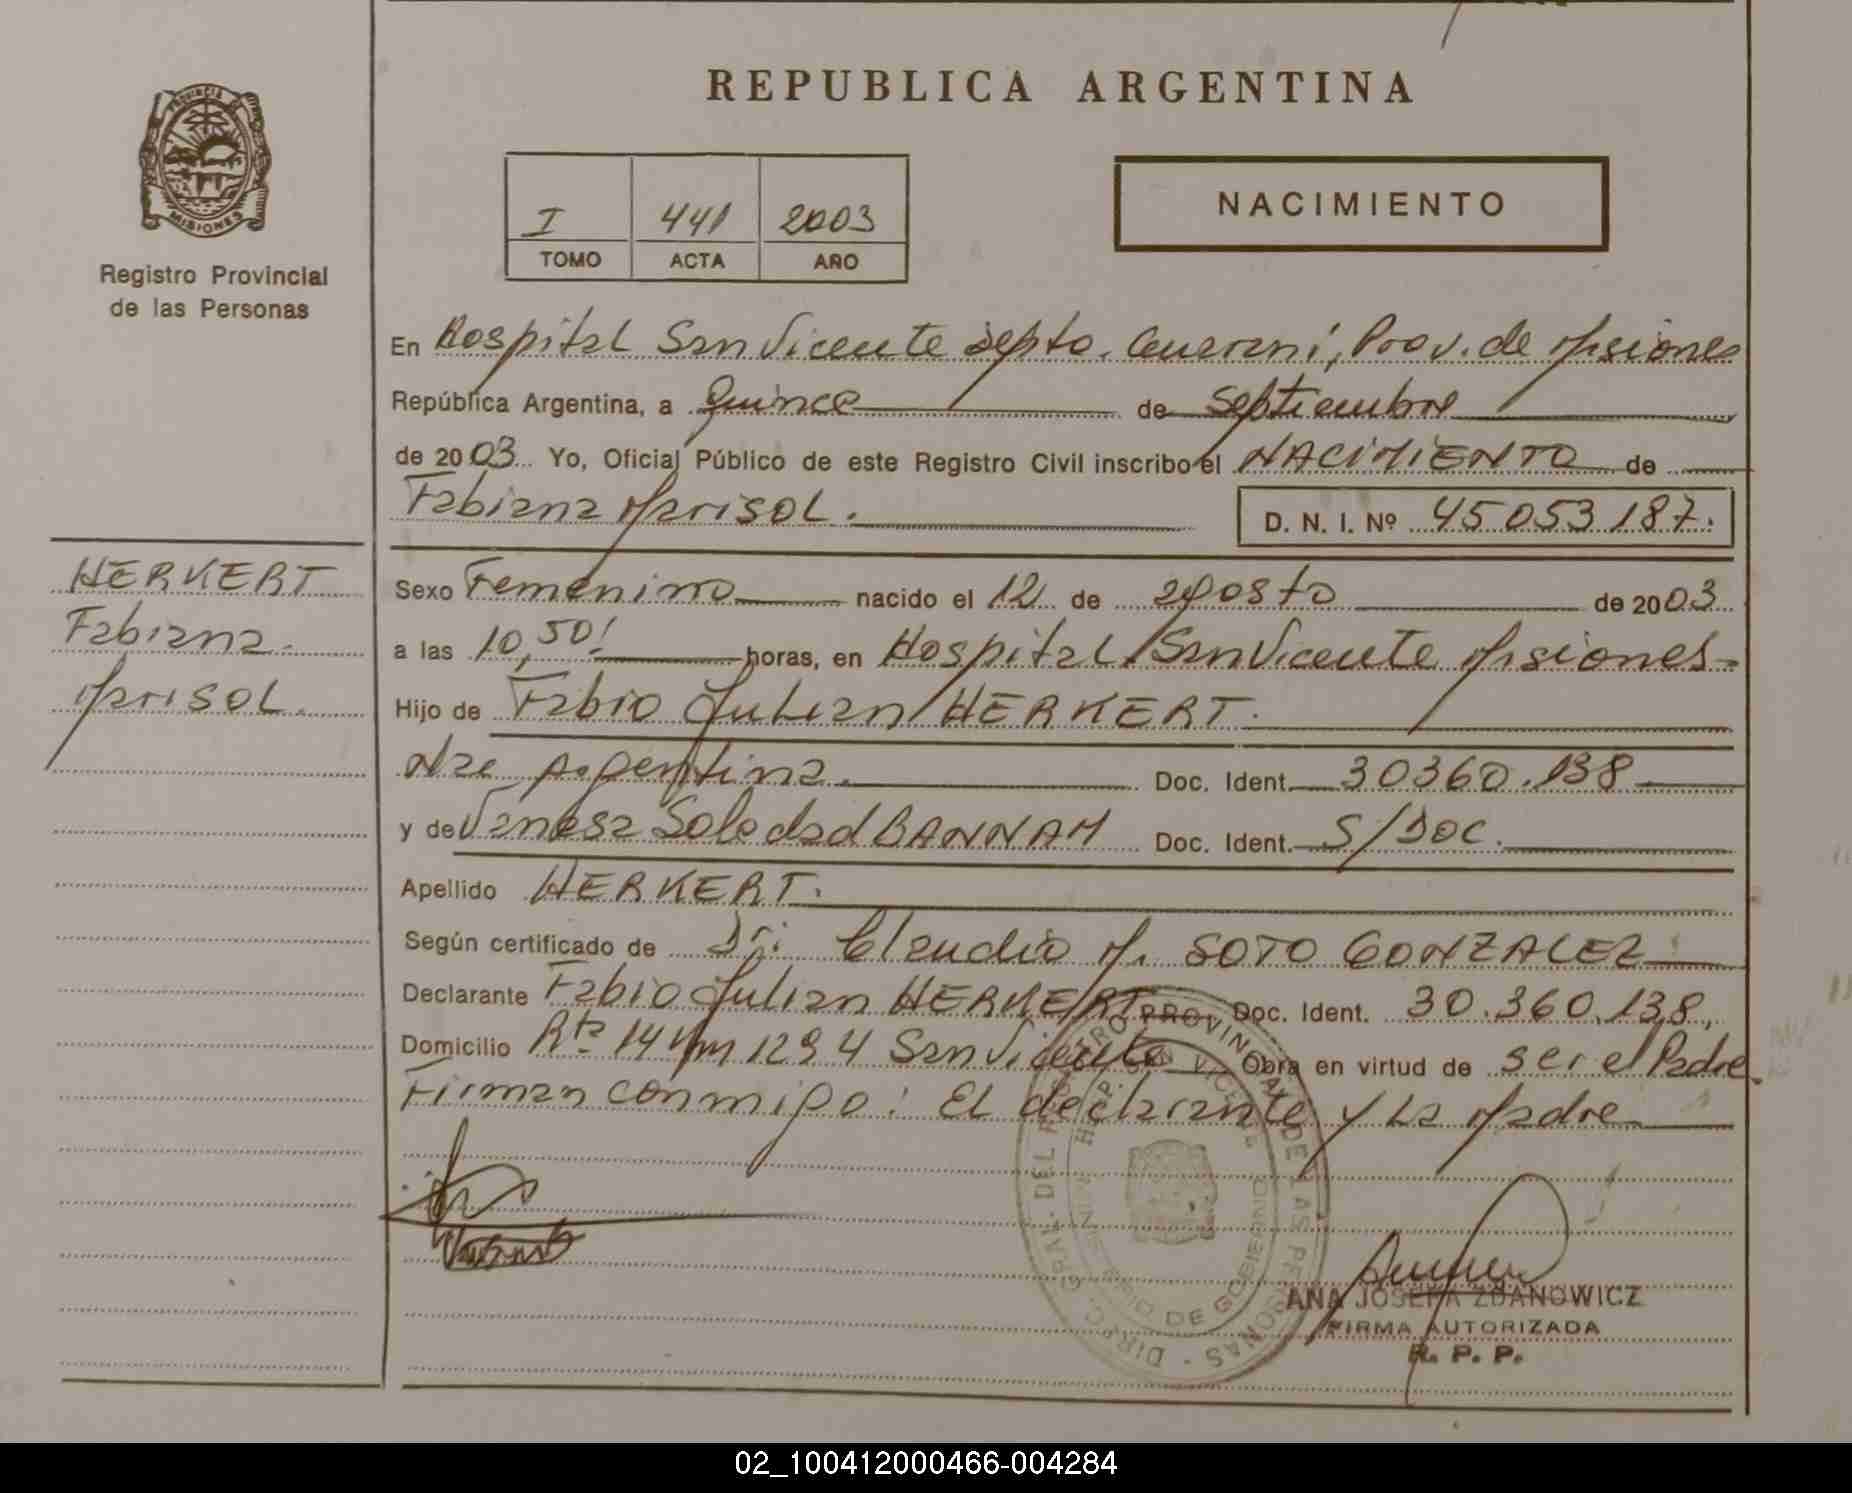 REPUBLICA ARGENTINA
PROVINCIA DE
MISIONES
Registro Provincial
de las Personas
I 441 2003
TOMO ACTA AÑO
NACIMIENTO
En Hospital San Vicente Depto. Guaraní, Prov. de Misiones
República Argentina, a Quince de Septiembre
de 2003 Yo, Oficial Público de este Registro Civil inscribo el NACIMIENTO de
Fabiana Marisol. D. N. I. Nº 45053187.
HERKERT
Fabiana
Marisol.
Sexo Femenino nacido el 12 de agosto de 2003
a las 10,50 horas, en Hospital San Vicente Misiones
Hijo de Fabio Julian HERKERT.
Nac Argentina. Doc. Ident. 30360.138
y de Vanesa Soledad BANNAM Doc. Ident. S/DOC.
Apellido HERKERT.
Según certificado de Dr: Claudio M. SOTO GONZALEZ
Declarante Fabio Julian HERKERT Doc. Ident. 30.360.138,
Domicilio Rta 14 Km 1294 San Vicente Obra en virtud de ser el Padre.
Firman conmigo: El declarante y La Madre
DIREC. GRAL. DEL REGISTRO PROVINCIAL DE LAS PERSONAS
MINISTERIO DE GOBIERNO
ANA JOSEFA ZDANOWICZ
FIRMA AUTORIZADA
R. P. P.
02_100412000466-004284